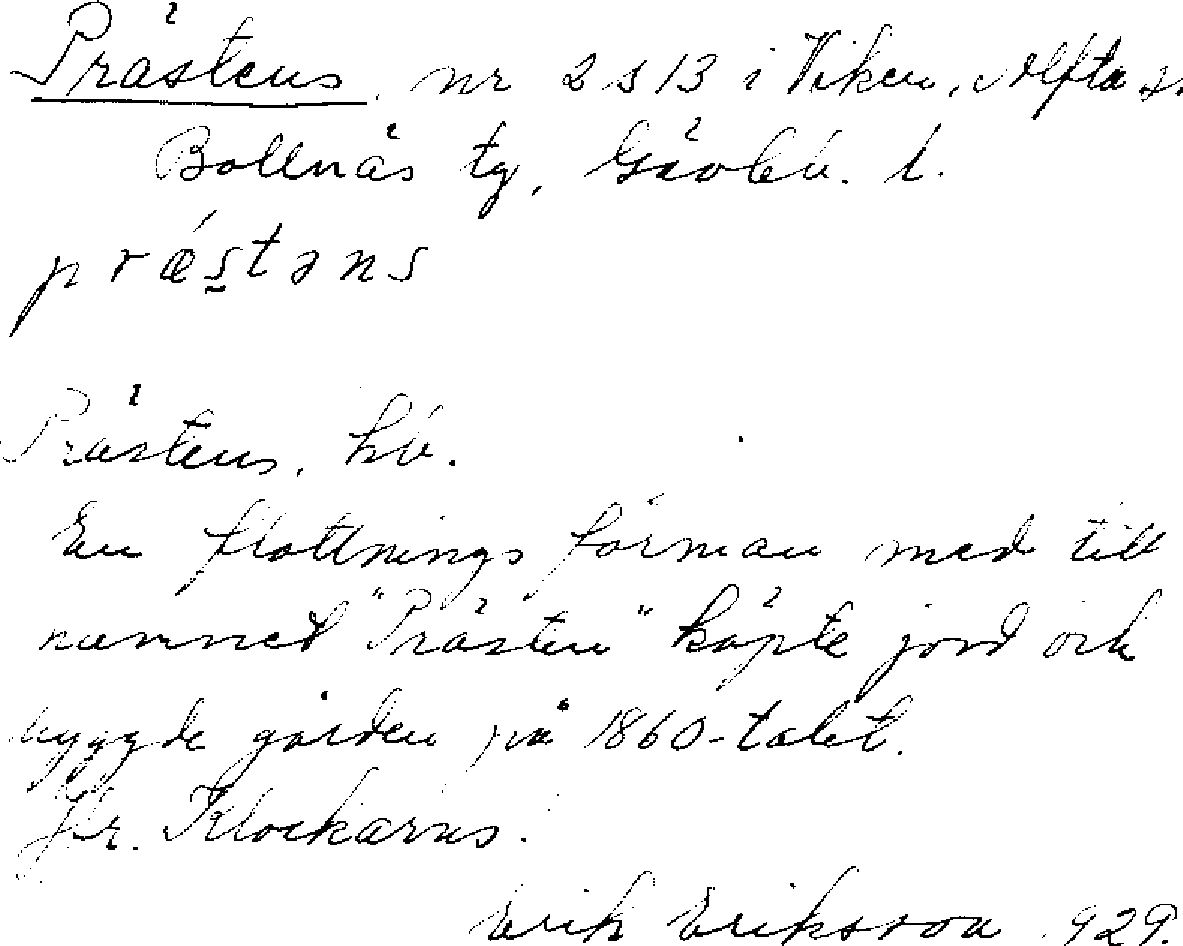 Prästens, nr 2 s 13 i Viken, Alfta s.
Bollnäs tg, Gävleb. l.
præ´s̱təns
Prästens, hb.
En flottningsförman med till
namnet "Prästen" köpte jord och
byggde gården på 1860-talet.
Jfr. Klockarns.
Erik Eriksson 929.